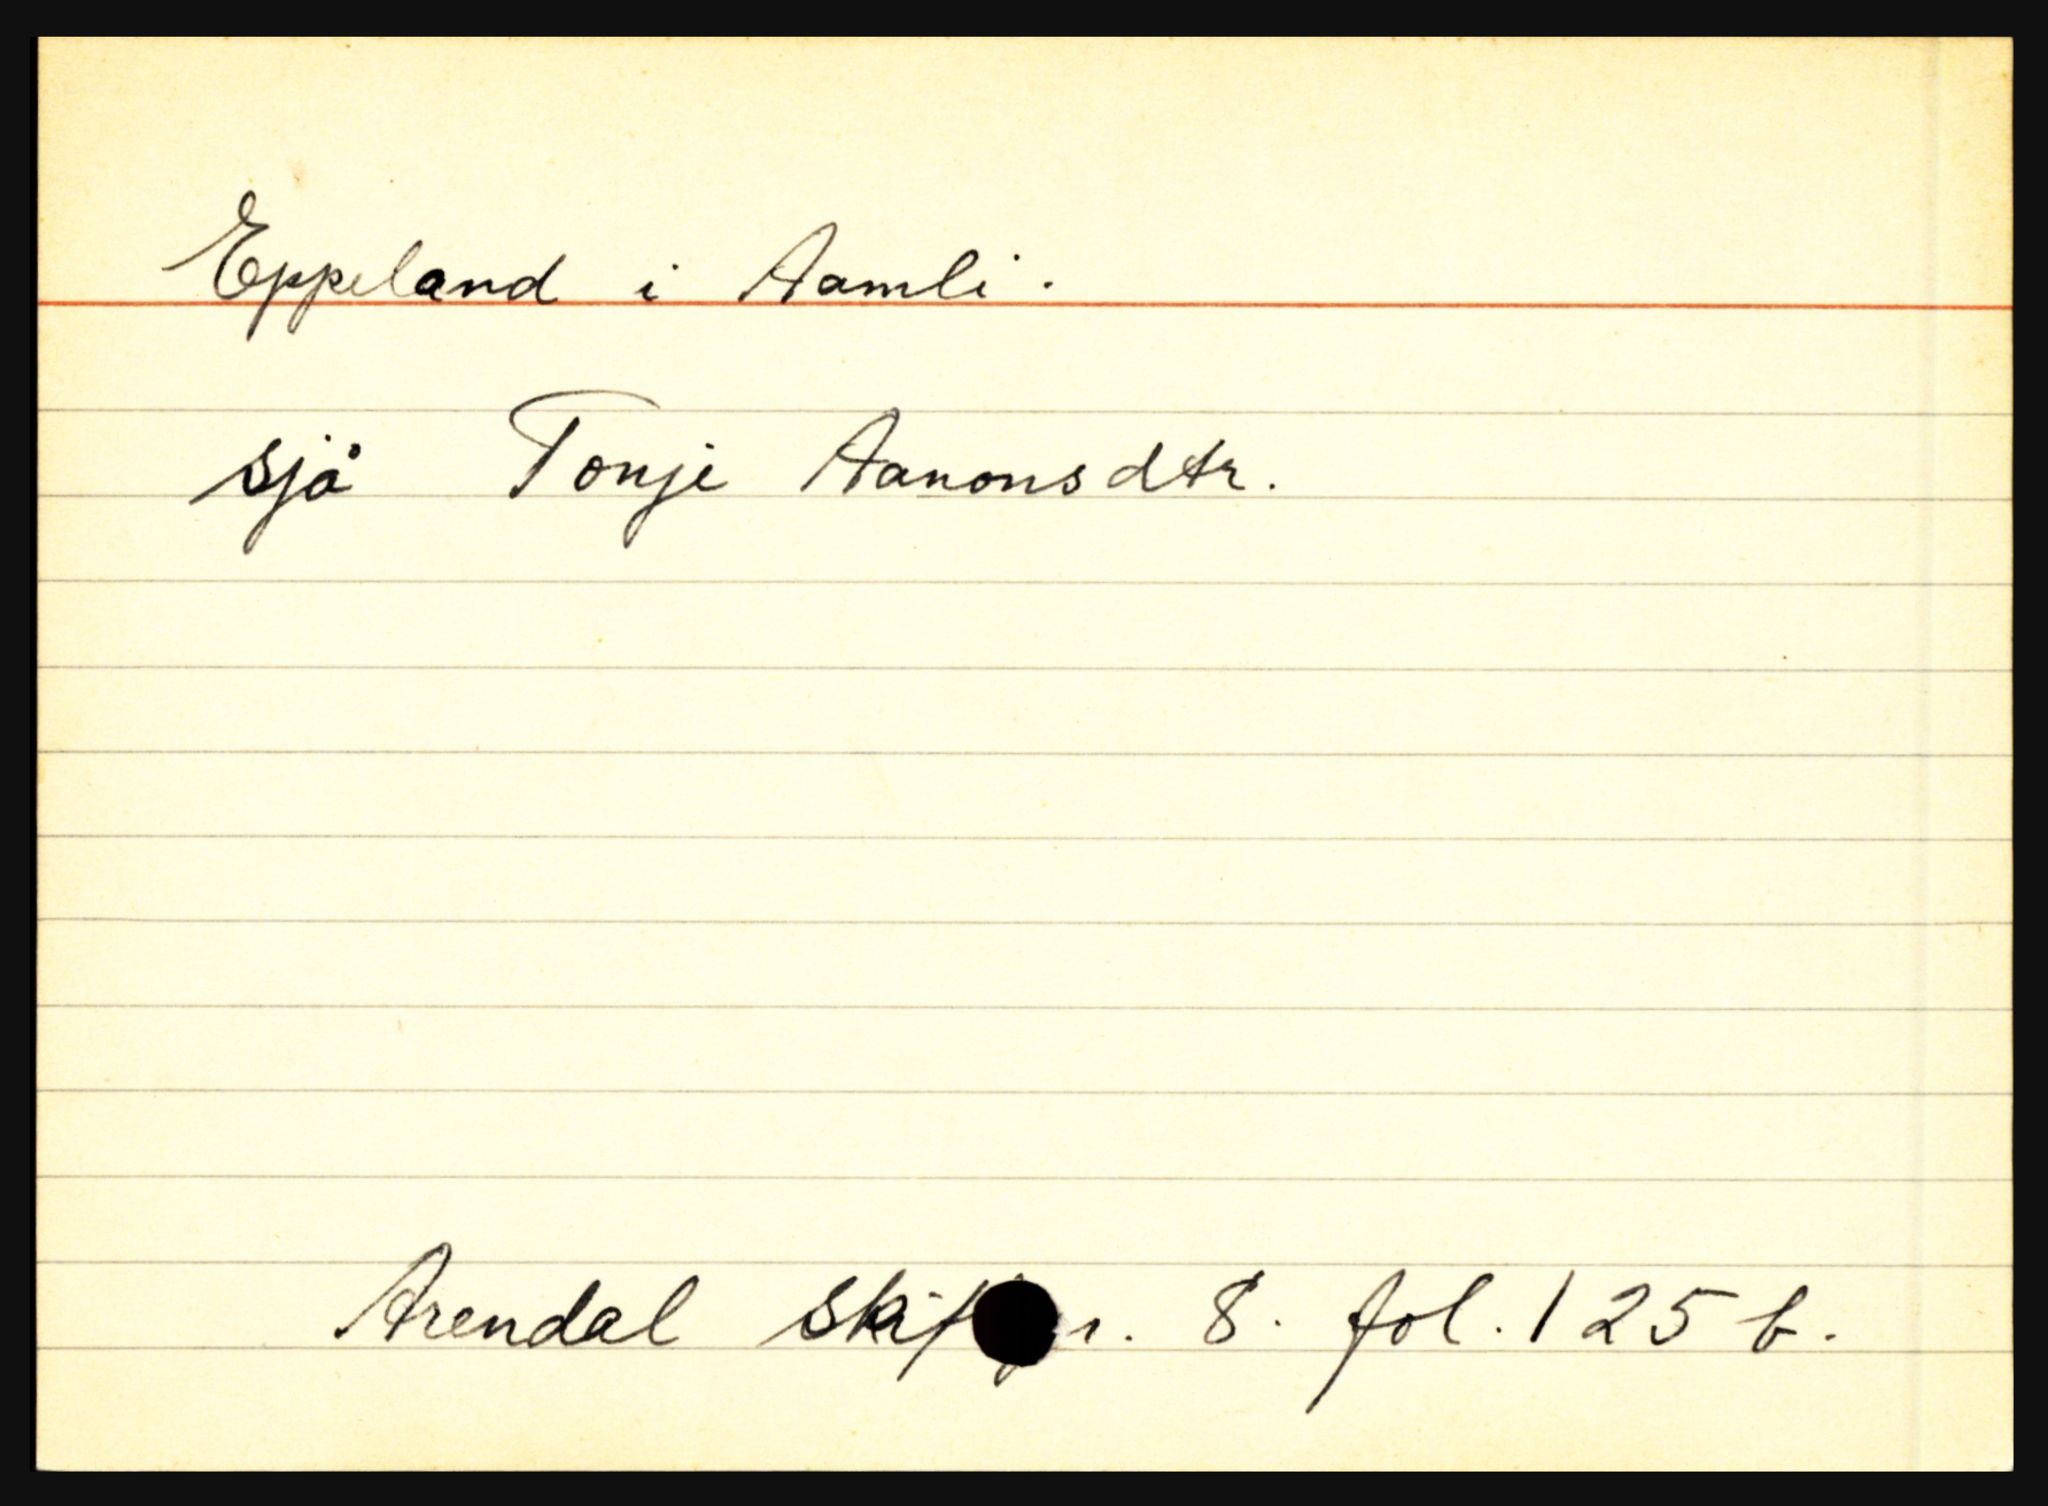 Eppeland i Aamli.
sjå Tonje Aanonsdtr.
Arendal 8. fol. 125 b.